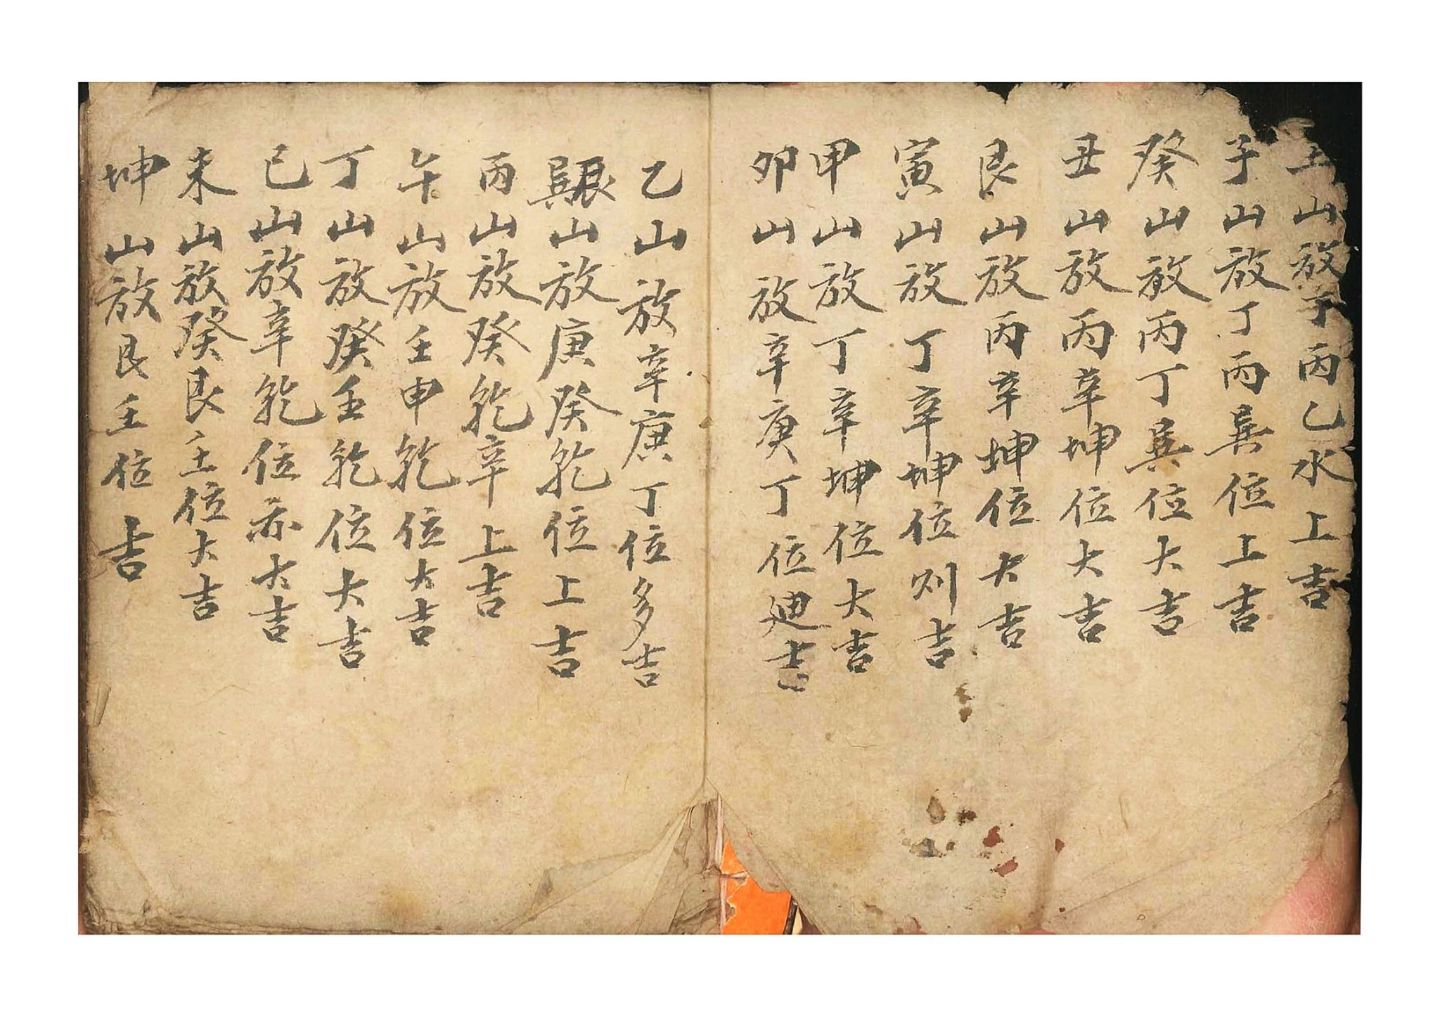 壬山放子丙乙水上吉
子山放丁丙巽位上吉
癸山放丙丁巽位大吉
丑山放丙辛坤位大吉
艮山放丙辛坤位大吉
寅山放丁辛坤位则吉
甲山放丁辛坤位大吉
卯山放辛庚丁位迪吉
乙山放辛庚丁位多吉
巽山放庚癸乾位上吉
丙山放癸乾辛上吉
午山放壬申乾位大吉
丁山放癸壬乾位大吉
巳山放辛乾位亦大吉
未山放癸艮壬位大吉
坤山放艮壬位吉